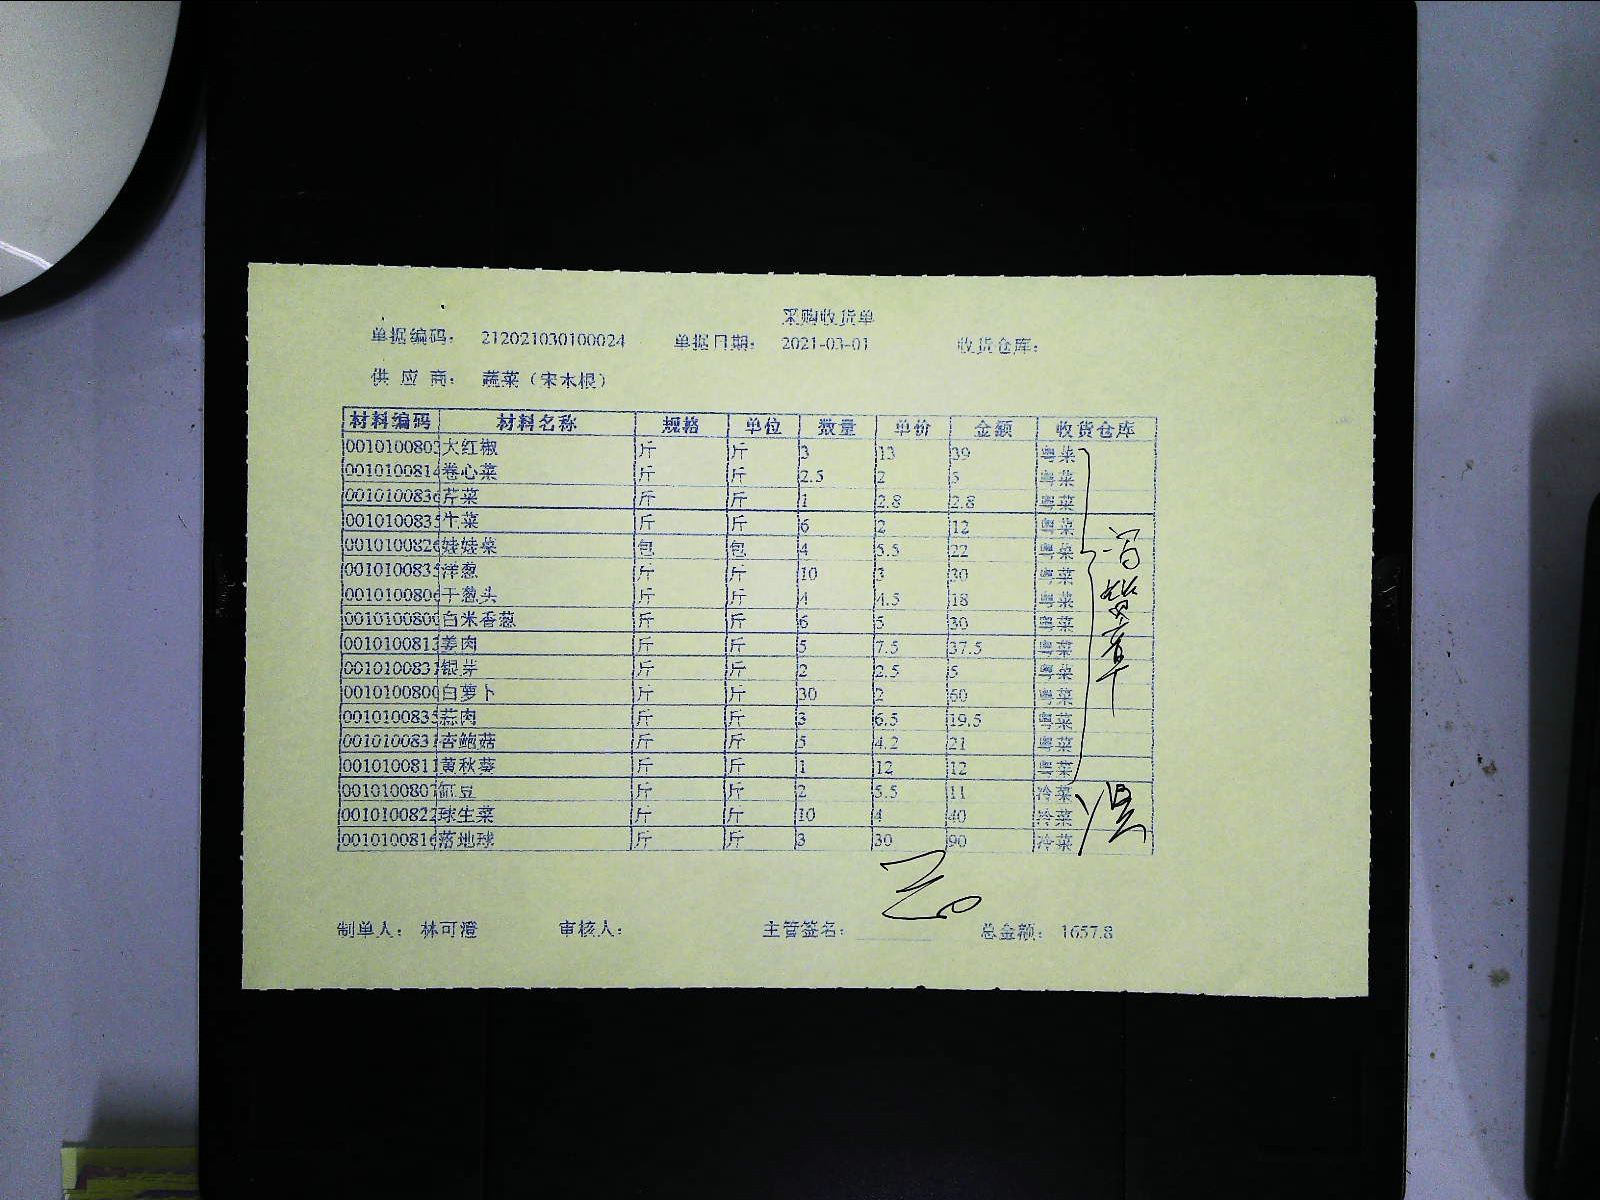 采购收货单
单据编码： 212021030100024 单据日期： 2021-03-01 收货仓库：
供 应 商： 蔬菜（宋木根）
材料编码 材料名称 规格 单位 数量 单价 金额 收货仓库
0010100803 大红椒 斤 斤 3 13 39 粤菜
0010100814 卷心菜 斤 斤 2.5 2 5 粤菜
0010100836 芹菜 斤 斤 1 2.8 2.8 粤菜
0010100835 生菜 斤 斤 6 2 12 粤菜
0010100826 娃娃菜 包 包 4 5.5 22 粤菜
0010100835 洋葱 斤 斤 10 3 30 粤菜
0010100806 干葱头 斤 斤 4 4.5 18 粤菜
0010100800 白米香葱 斤 斤 6 5 30 粤菜
0010100813 姜肉 斤 斤 5 7.5 37.5 粤菜
0010100831 银芽 斤 斤 2 2.5 5 粤菜
0010100800 白萝卜 斤 斤 30 2 60 粤菜
0010100835 蒜肉 斤 斤 3 6.5 19.5 粤菜
0010100831 杏鲍菇 斤 斤 5 4.2 21 粤菜
0010100811 黄秋葵 斤 斤 1 12 12 粤菜
0010100807 豇豆 斤 斤 2 5.5 11 冷菜
0010100822 球生菜 斤 斤 10 4 40 冷菜
0010100816 落地球 斤 斤 3 30 90 冷菜
制单人： 林可澄 审核人： 主管签名： 总金额： 1657.8